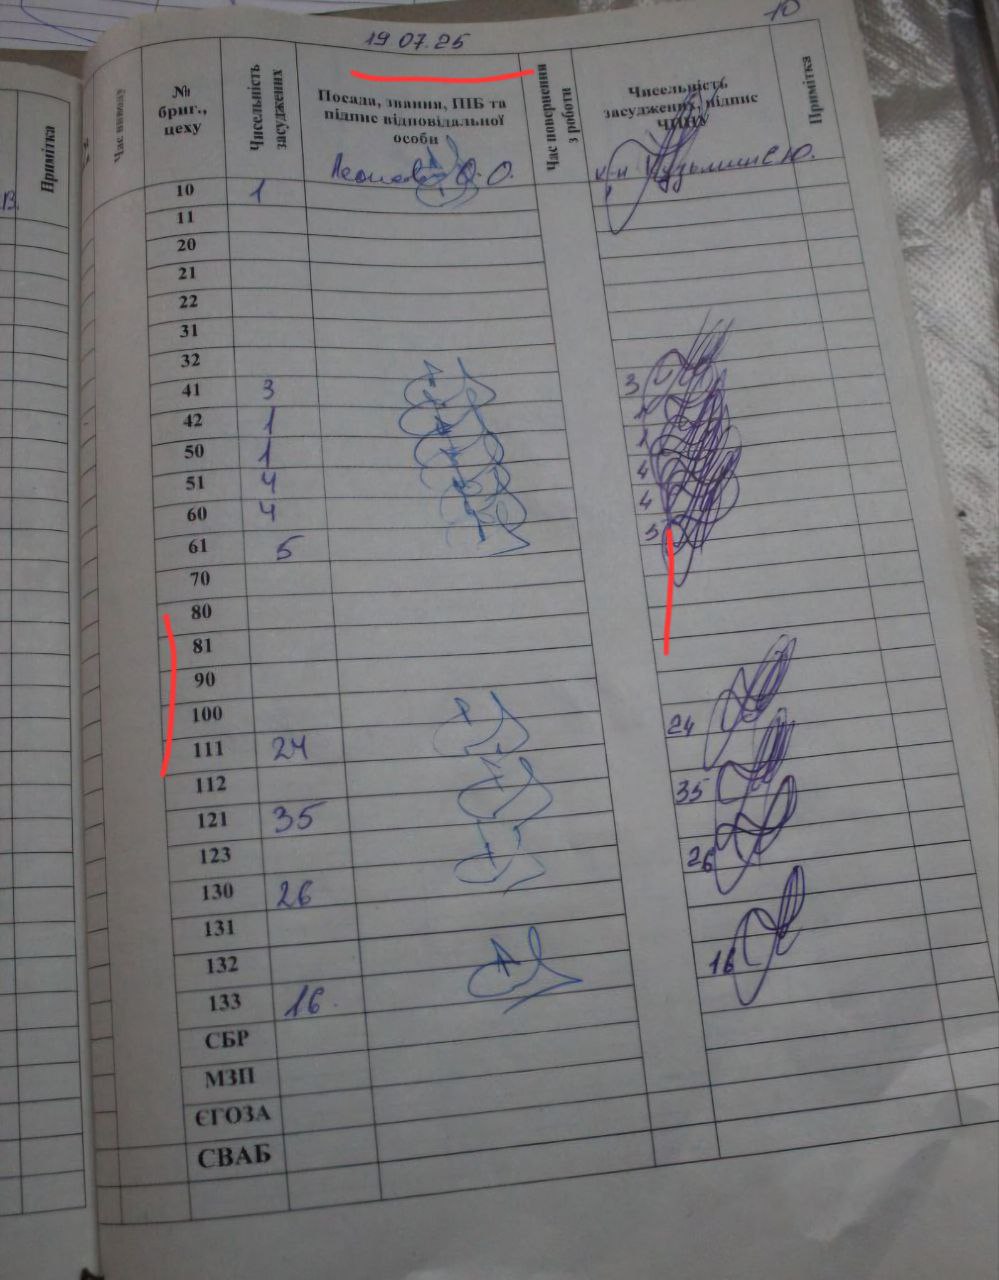 10
19.07.25
Примітка
Час виводу
№ бриг., цеху
Чисельність засуджених
Посада, звання, ПІБ та підпис відповідальної особи
Час повернення з роботи
Чисельність засуджених, підпис ЧПНУ
Примітка
О.О.
к-н Кузьмин Є.Ю.
В.
10 1
11
20
21
22
31
32
41 3 3
42 1 1
50 1 1
51 4 4
60 4 4
61 5 5
70
80
81
90
100
111 24 24
112
121 35 35
123
130 26 26
131
132
133 16 16
СБР
МЗП
ЄГОЗА
СВАБ